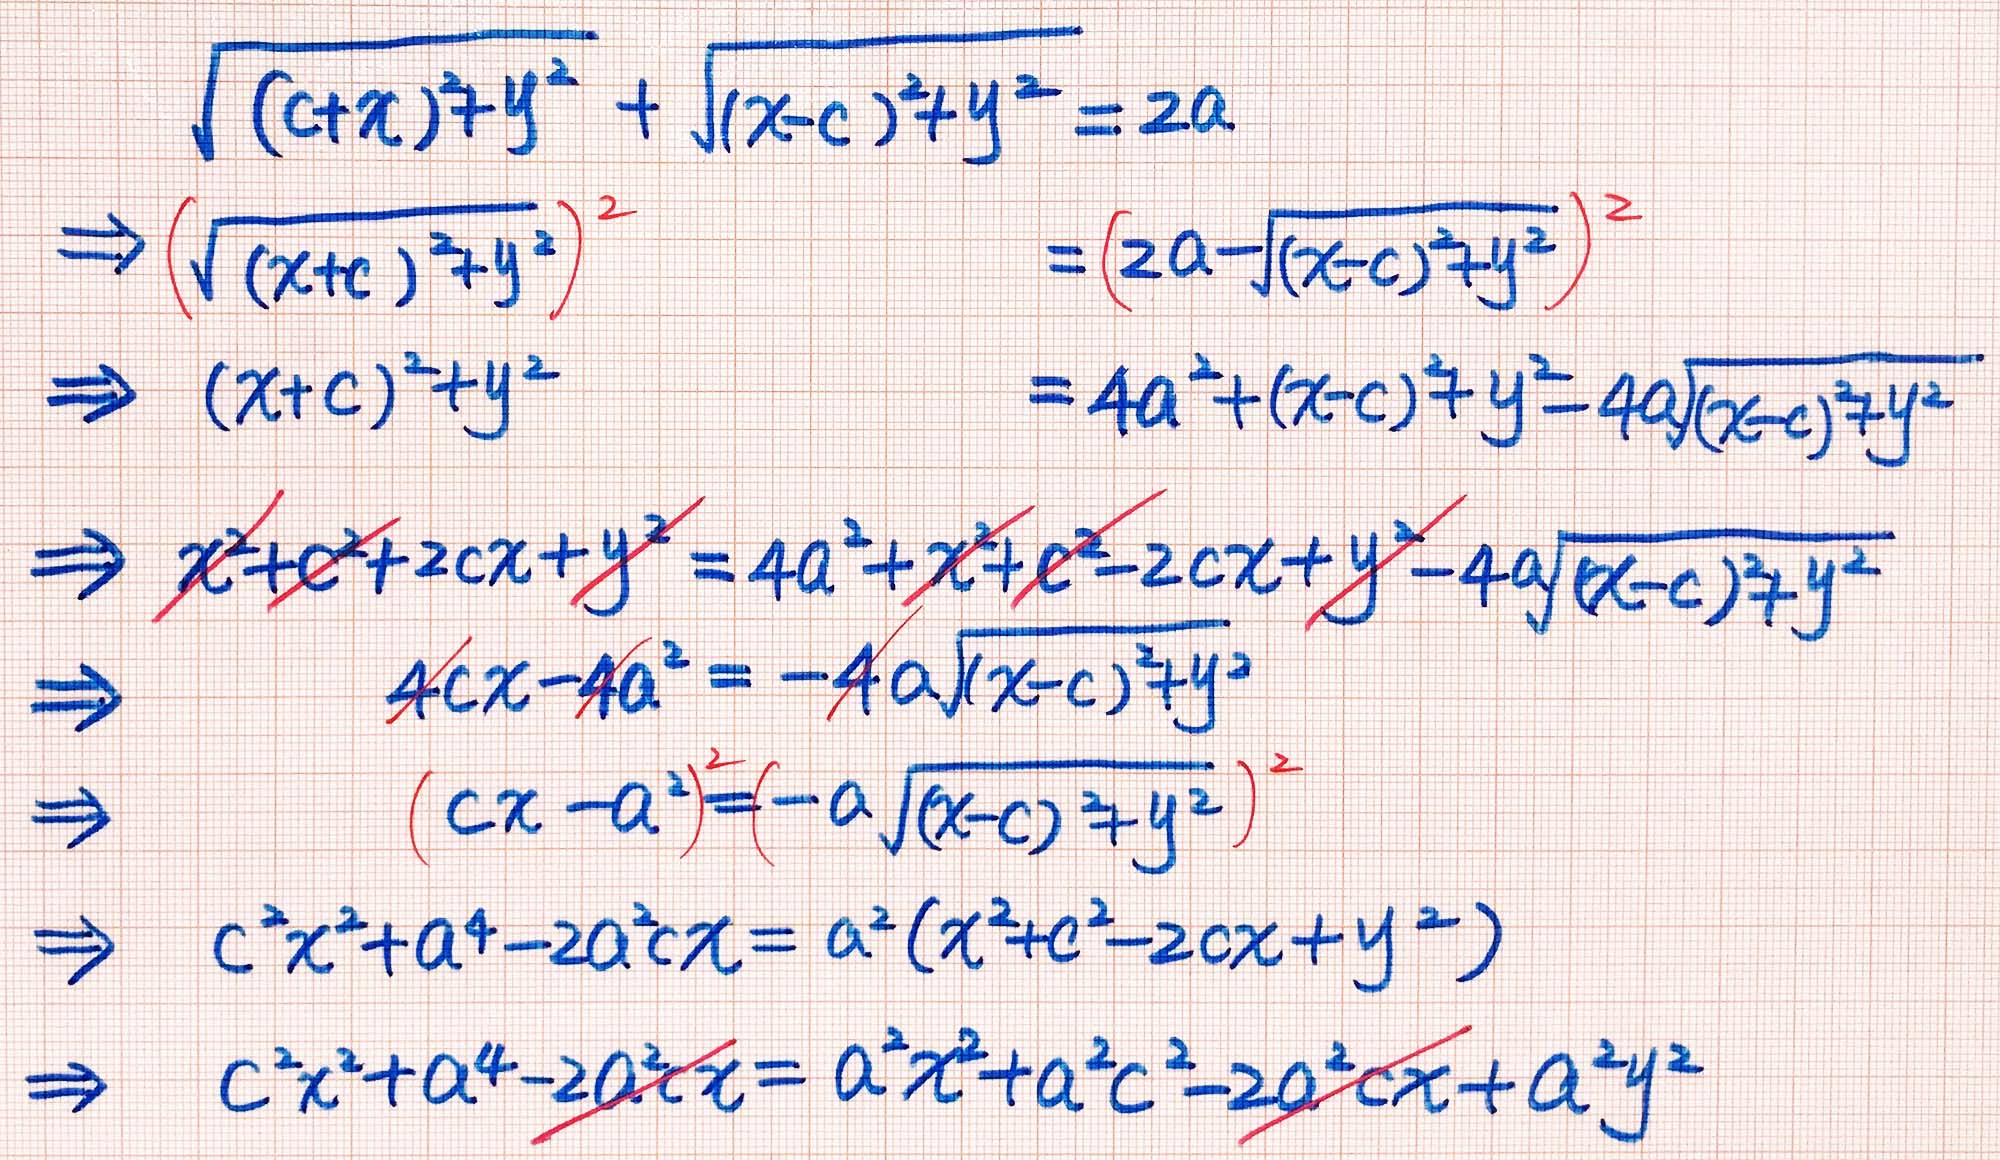 √((c+x)²+y²) + √((x-c)²+y²) = 2a
⇒ (√((x+c)²+y²))² = (2a-√((x-c)²+y²))²
⇒ (x+c)²+y² = 4a²+(x-c)²+y²-4a√((x-c)²+y²)
⇒ x²+c²+2cx+y² = 4a²+x²+c²-2cx+y²-4a√((x-c)²+y²)
⇒ 4cx-4a² = -4a√((x-c)²+y²)
⇒ (cx-a²)² = (-a√((x-c)²+y²))²
⇒ c²x²+a⁴-2a²cx = a²(x²+c²-2cx+y²)
⇒ c²x²+a⁴-2a²cx = a²x²+a²c²-2a²cx+a²y²